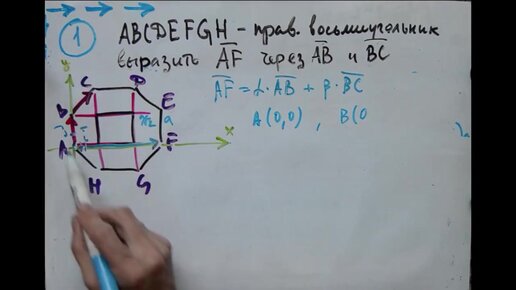 1 ABCDEFGH - прав. восьмиугольник
выразить AF через AB и BC
AF = α·AB + β·BC
A(0,0) , B(0
y
C D
B E
a
x
A F
H G